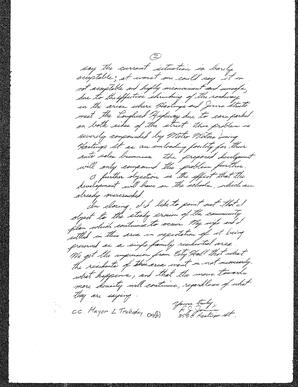 ②
say the current situation is barely
acceptable; at worst one could say it is
not acceptable and highly inconvenient and unsafe,
due to the effective shrinking of the roadway
in the area where Hastings and Streets
meet the Lougheed Highway due to cars parked
on both sides of the street. This problem is
severely compounded by Motors using
Hastings St as an unloading facility for their
auto sales business. The proposed development
will only compound the problem further.
A further objection is the effect that the
development will have on the schools, which are
already overcrowded.
In closing, I'd like to point out that I
object to the steady erosion of the community
plan which continues to occur. My wife and I
settled in this area in expectation of it being
preserved as a single family residential area.
We get the impression from City Hall that what
the residents of the area want is not necessarily
what happens, and that the move towards
more density will continue, regardless of what
they are saying.
Yours truly,
CC Mayor L
St